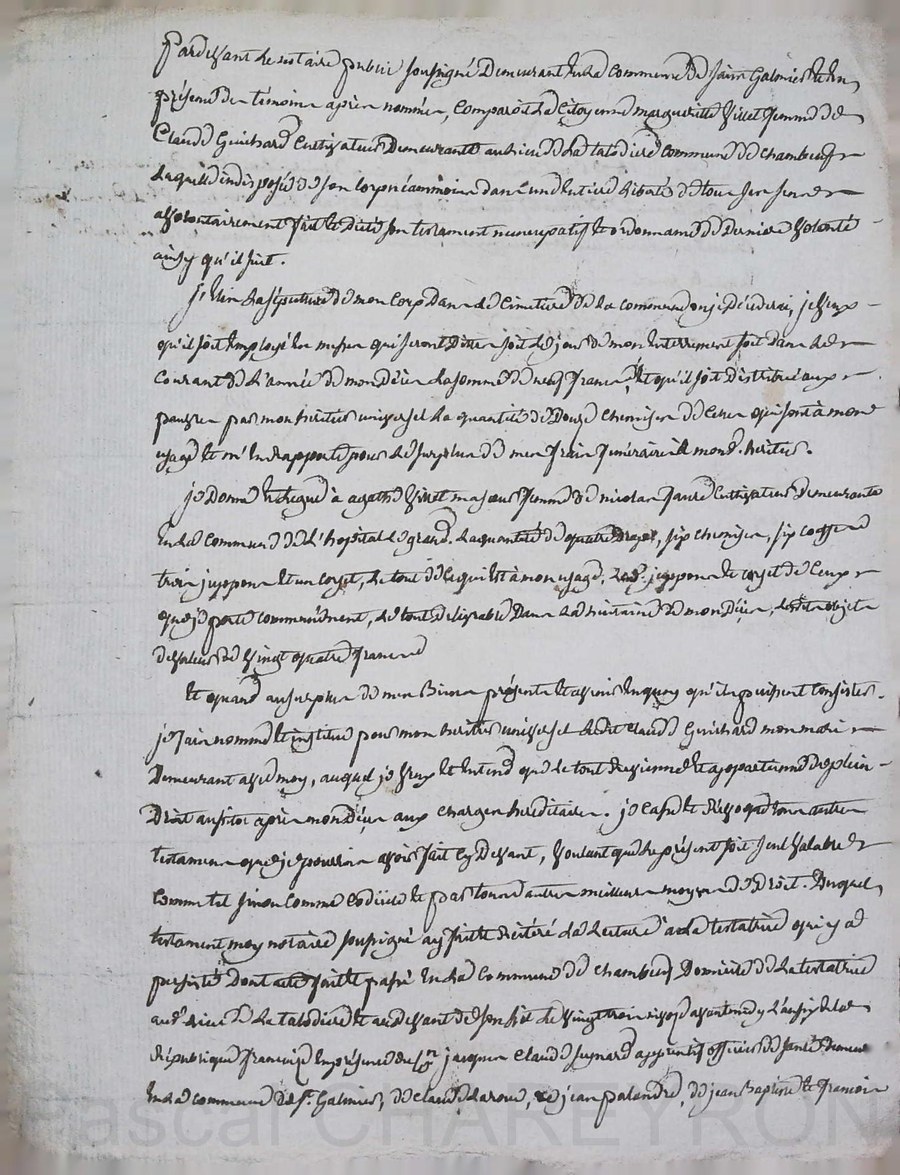 Pardevant le notaire public soussigné Demeurant En la commune de saint Galmier Et En
présence des témoins après nommés, Comparoit La Citoyenne marguerite Viret femme de
Claude Guichard Cultivateur Demeurante au lieu de La taladiere commune de chambeuf
Laquelle indisposée de son corps néanmoins dans une Entiere Liberté de tous ses sens
a volontairement fait Et Dicté son testament nuncupatif Et ordonnance de Derniere Volonté
ainsy qu'il suit.
J'Elis La sépulture de mon Corps Dans Le Cimetiere de La commune ou je Décéderai, je Veux
qu'il soit Employé En messes qui seront Dittes soit Le jour de mon Enterrement soit dans Le
Courant de L'année de mon Décès La somme de neuf francs Et qu'il soit Distribué aux
pauvres par mon heritier universel La quantité de Douze Chemises de Celles qui sont à mon
usage Et m'En Rapporte pour Le surplus de mes frais funéraires à mond. heritier.
je Donne Et Legue à agathe Viret ma sœur femme de nicolas faure Cultivateur Demeurante
En La Commune de L'hopital Le grand, La quantité de quatre Draps, six Chemises, six coiffes
trois juppons Et un Corset, Le tout de Ce qui Est à mon usage, Les d. juppons Et corset de Ceux
que je porte communément, Le tout Delivrable Dans La huitaine de mon Décès, Lesdits objets
de valeur de Vingt quatre francs
Et quand au surplus de mes Biens présents Et avenir En quoy qu'ils puissent Consister
je fais nomme Et institue pour mon heritier universel Ledit Claude Guichard mon mari
Demeurant avec moy, auquel je Veux Et Entend que Le tout Revienne Et appartienne De plein
Droit aussitot après mon Décès aux charges hereditaires. je Casse Et Révoque tous autres
testaments que je pourrois avoir fait Cy Devant, Voulant que Le présent soit seul Valable
Comme tel sinon Comme Codicile Et par tous autres meilleurs moyens de Droit. Duquel
testament moy notaire soussigné ay fait Et Réitéré La Lecture à La testatrice qui y a
persisté Dont acte fait Et passé En La Commune de Chambeuf Domicile de La testatrice
aud. lieu de La taladiere Et au devant de son Lit Le Vingt trois avant midy L'an six de La
République française En présence du Cn jacques Claude apprentif officier de santé Demeur
En La commune de St. Galmier, de Claude Laroue, de jean palandre, de jean Baptiste Et francois
Pascal CHAREYRON